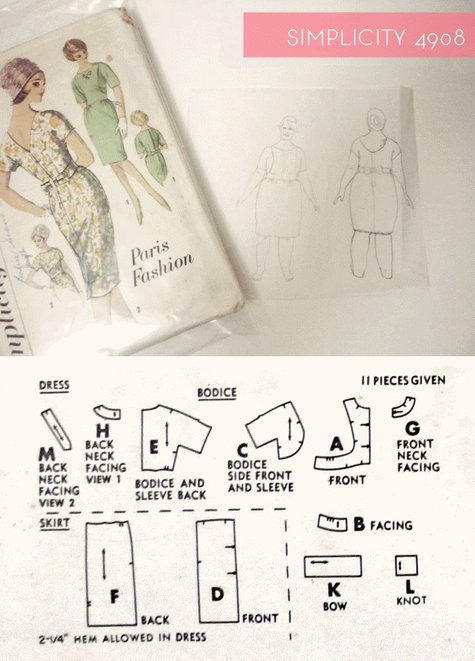 SIMPLICITY 4908
Paris
Fashion
1
1
2
2
DRESS
BODICE
11 PIECES GIVEN
M
BACK
NECK
FACING
VIEW 2
H
BACK
NECK
FACING
VIEW 1
E
BODICE AND
SLEEVE BACK
C
BODICE
SIDE FRONT
AND SLEEVE
A
FRONT
G
FRONT
NECK
FACING
SKIRT
F
BACK
D
FRONT
B FACING
K
BOW
L
KNOT
2-1/4" HEM ALLOWED IN DRESS